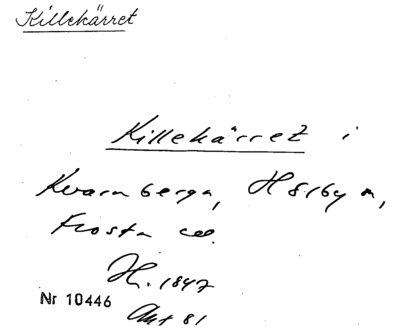 Killekärret
Killekärret i
Kvarnberga, Hörby sn,
Frosta hd.
H. 1847
Nr 10446
Akt 81